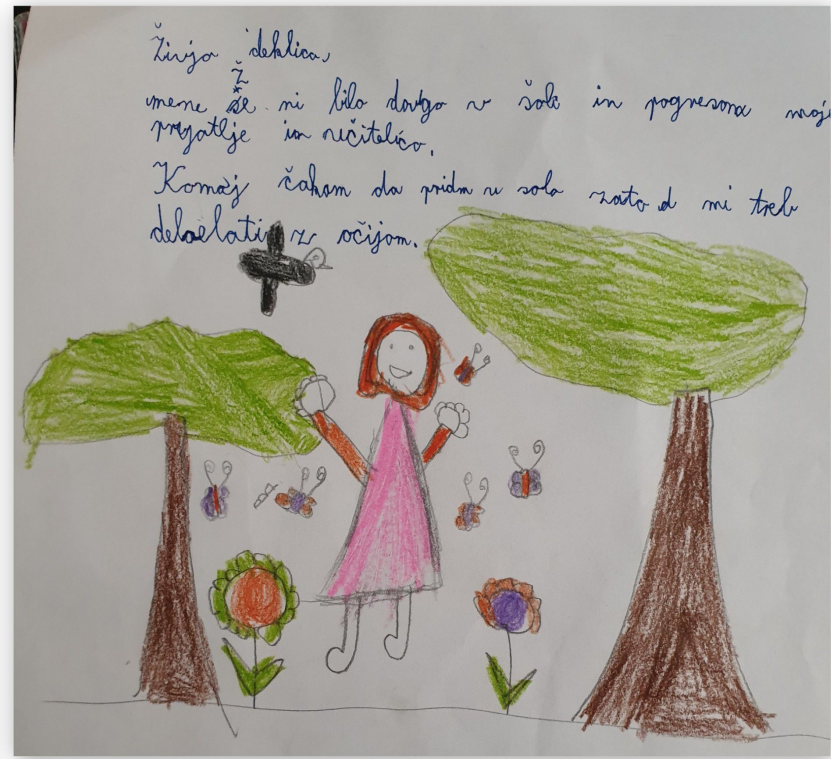 Živjo deklica,
mene že ni bilo dovgo v šoli in pogresam moje
prijatlje in učitelico.
Komaj čakam da pridm v solo zato d mi treb
delati z očijom.